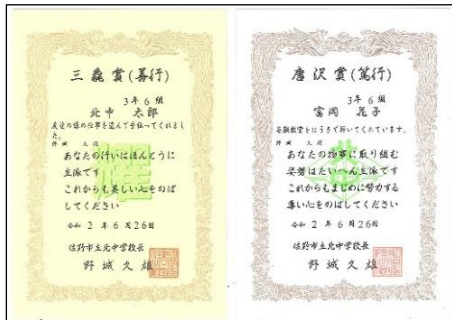 三毳賞(善行)
3年6組
北中 太郎
友達の係の仕事を進んで手伝ってくれました。
あなたの行いはほんとうに
立派です
これからも美しい心をのば
してください
令和 2年 6月26日
佐野市立北中学校長
野城久雄
唐沢賞(篤行)
3年6組
富岡 花子
毎朝教室をほうきで掃いてくれています。
あなたの物事に取り組む
姿勢はたいへん立派です
これからもまじめに努力する
尊い心をのばしてください
令和 2年 6月26日
佐野市立北中学校長
野城久雄